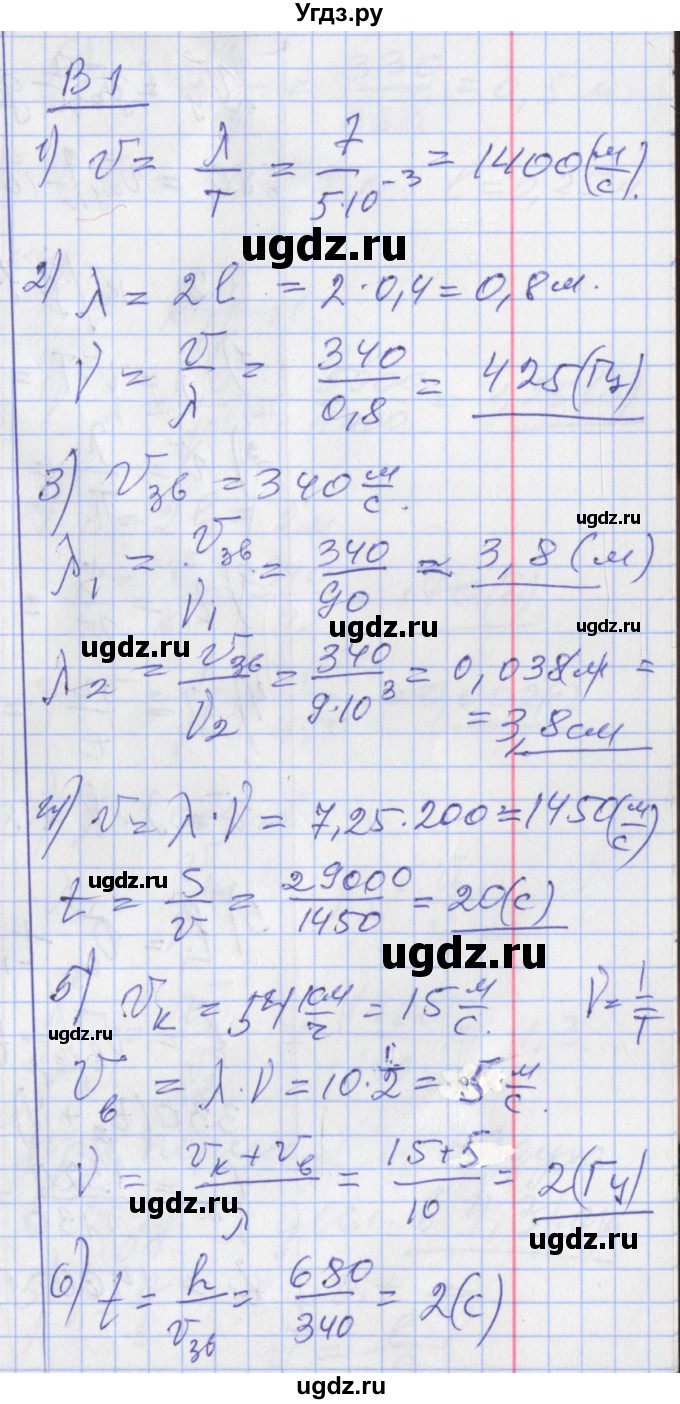 Угдз.ру
В 1
1) v = λ/T = 7/5·10⁻³ = 1400 (м/с).
ugdz.ru
2) λ = 2l = 2·0,4 = 0,8 м.
ν = v/λ = 340/0,8 = 425 (Гц)
ugdz.ru
3) vзв = 340 м/с.
ugdz.ru
λ₁ = vзв/ν₁ = 340/90 ≈ 3,8 (м)
ugdz.ru ugdz.ru
λ₂ = vзв/ν₂ = 340/9·10³ = 0,038 м =
= 3,8 см
4) v = λ·ν = 7,25·200 = 1450 (м/с)
ugdz.ru
t = S/v = 29000/1450 = 20 (с)
ugdz.ru
5) vк = 54 км/ч = 15 м/с. ν = 1/T
ugdz.ru
vв = λ·ν = 10·1/2 = 5 м/с.
ν = vк + vв/λ = 15+5/10 = 2 (Гц)
ugdz.ru ugdz.ru
6) t = h/vзв = 680/340 = 2 (с)
ugdz.ru
ugdz.ru